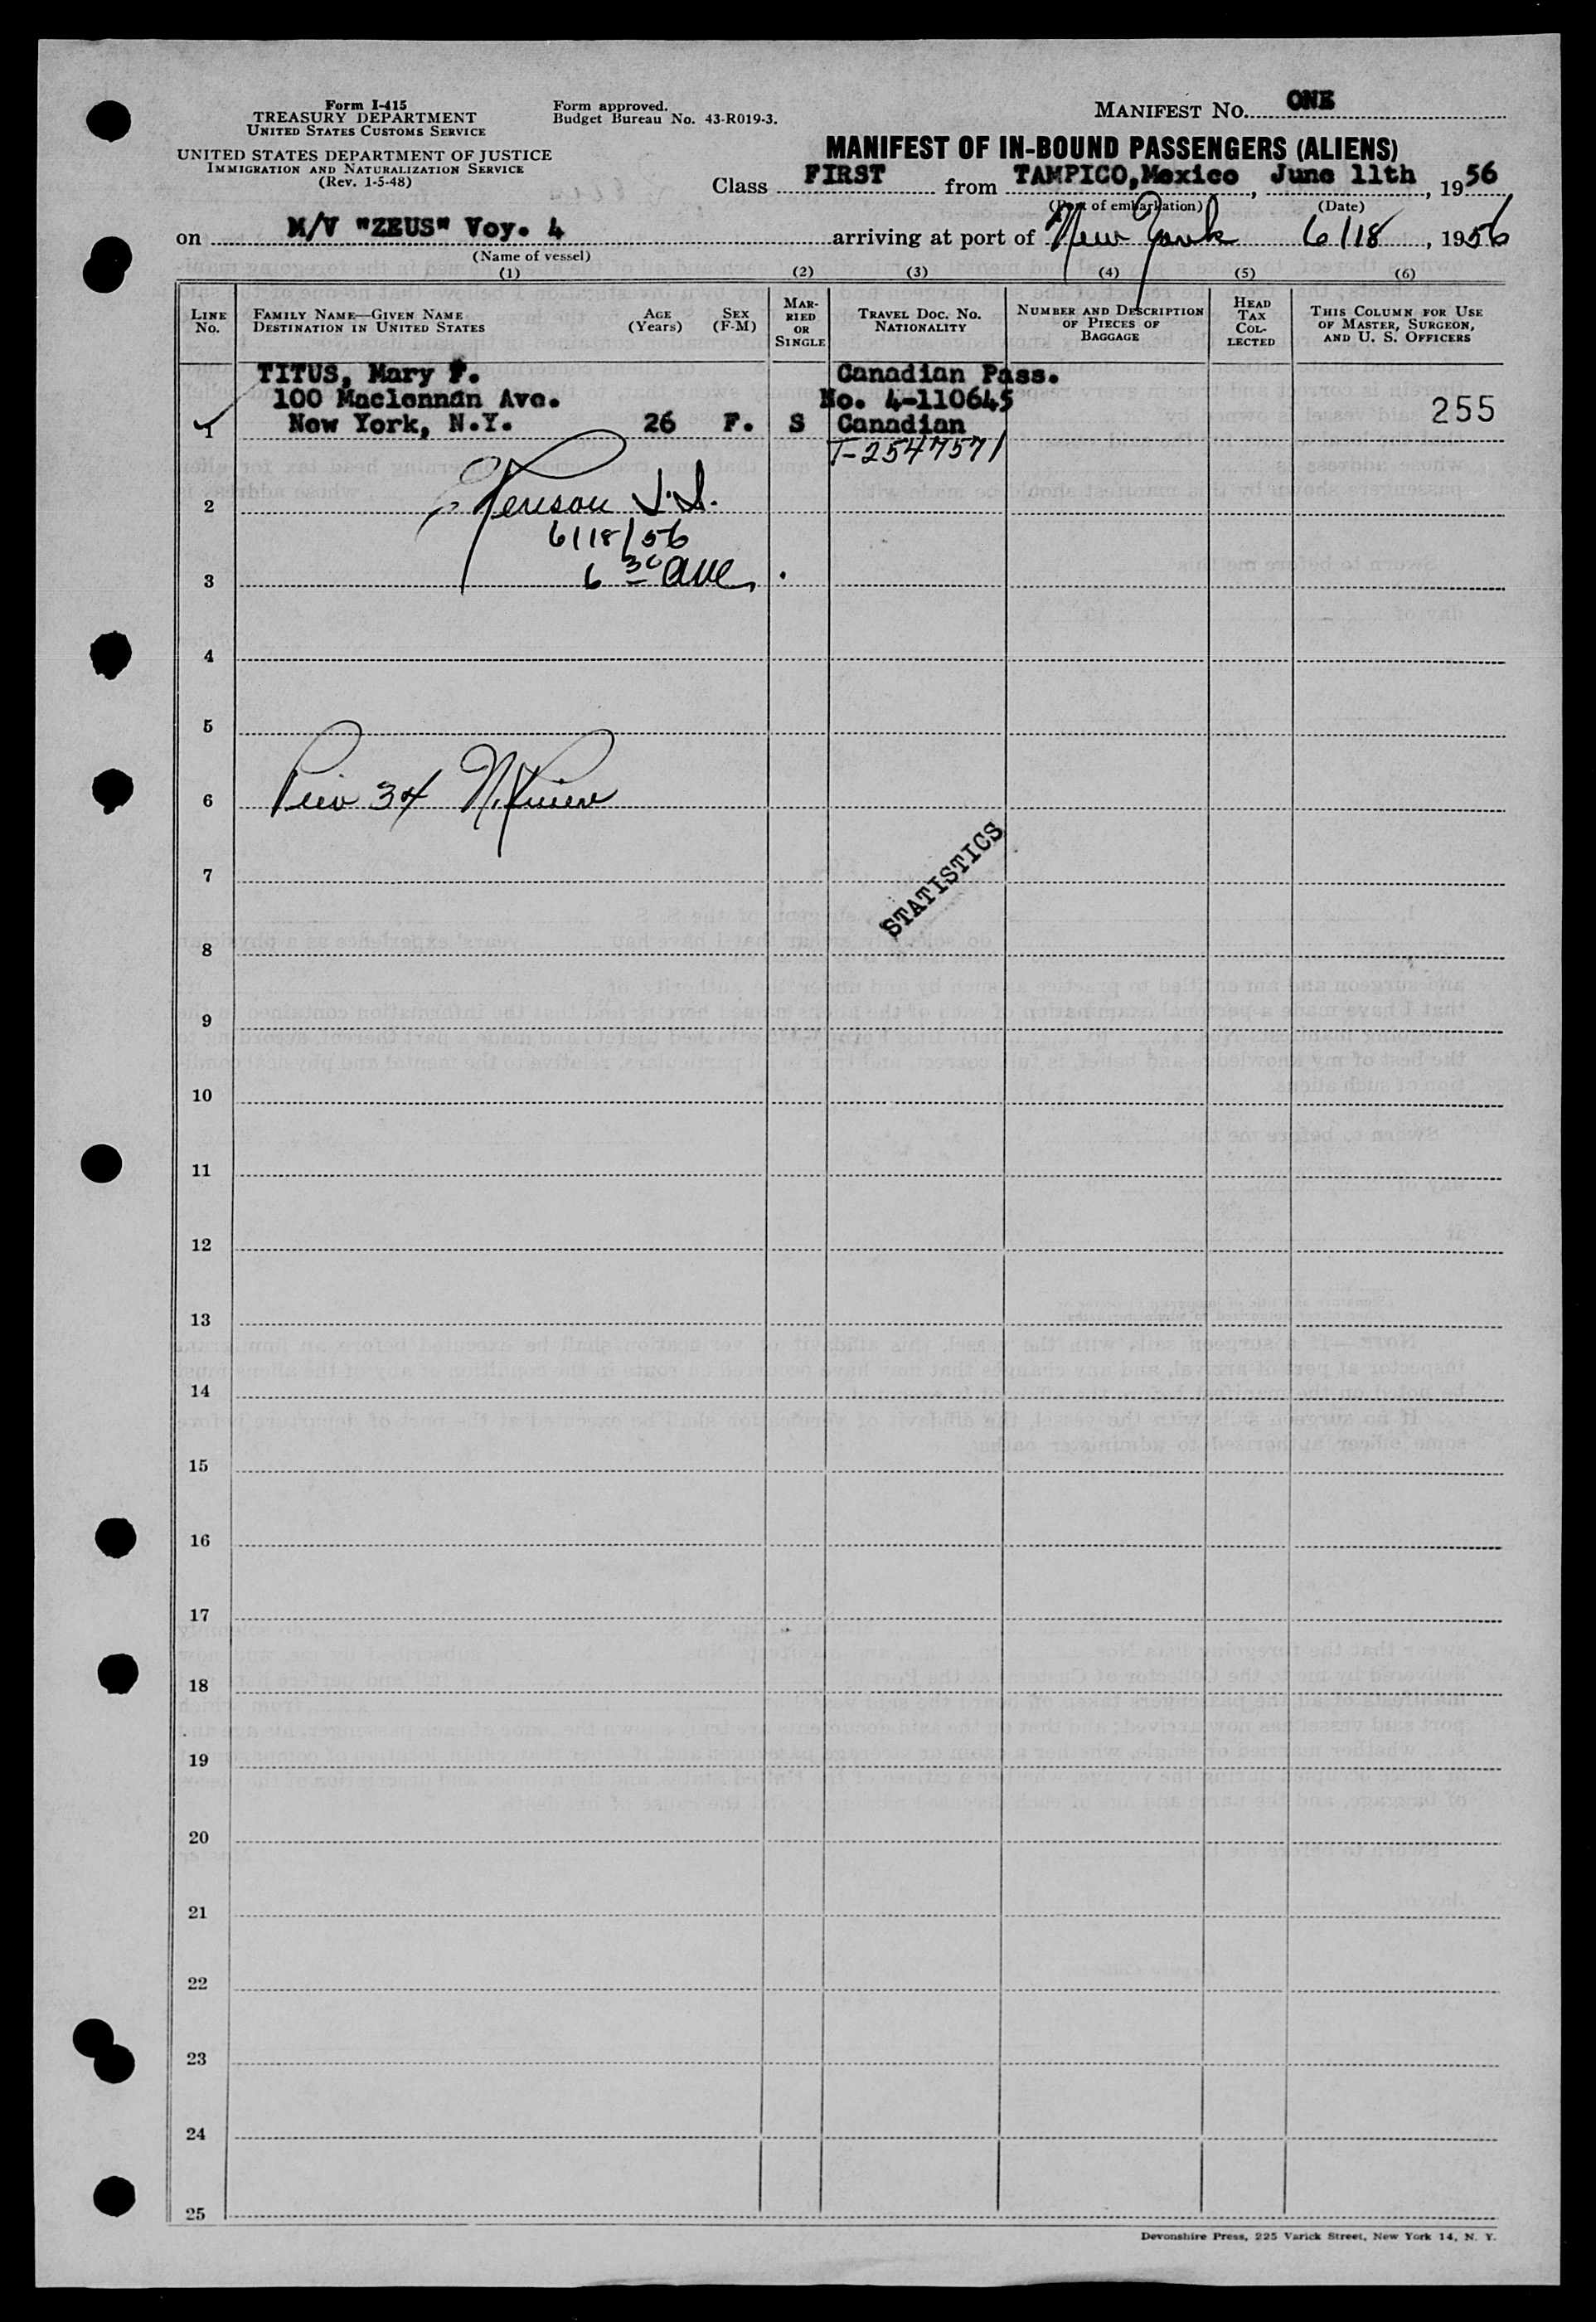 Form I-415
TREASURY DEPARTMENT
UNITED STATES CUSTOMS SERVICE
UNITED STATES DEPARTMENT OF JUSTICE
IMMIGRATION AND NATURALIZATION SERVICE
(Rev. 1-5-48)
Form approved.
Budget Bureau No. 43-R019-3.
MANIFEST No. ONE
MANIFEST OF IN-BOUND PASSENGERS (ALIENS)
Class FIRST from TAMPICO, Mexico, June 11th, 1956
(Port of embarkation) (Date)
on M/V "ZEUS" Voy. 4 arriving at port of New York 6/18, 1956
(Name of vessel)
(1) (2) (3) (4) (5) (6)
LINE No.
FAMILY NAME—GIVEN NAME
DESTINATION IN UNITED STATES
AGE (Years)
SEX (F-M)
MARRIED OR SINGLE
TRAVEL DOC. No.
NATIONALITY
NUMBER AND DESCRIPTION OF PIECES OF BAGGAGE
HEAD TAX COLLECTED
THIS COLUMN FOR USE OF MASTER, SURGEON, AND U. S. OFFICERS
TITUS, Mary F. Canadian Pass.
100 Maclennan Ave. No. 4-110645
1 New York, N.Y. 26 F. S Canadian 255
T-2547571
2
6/18/56
3
4
5
6 Pier 34
7
STATISTICS
8
9
10
11
12
13
14
15
16
17
18
19
20
21
22
23
24
25
Devonshire Press, 225 Varick Street, New York 14, N. Y.